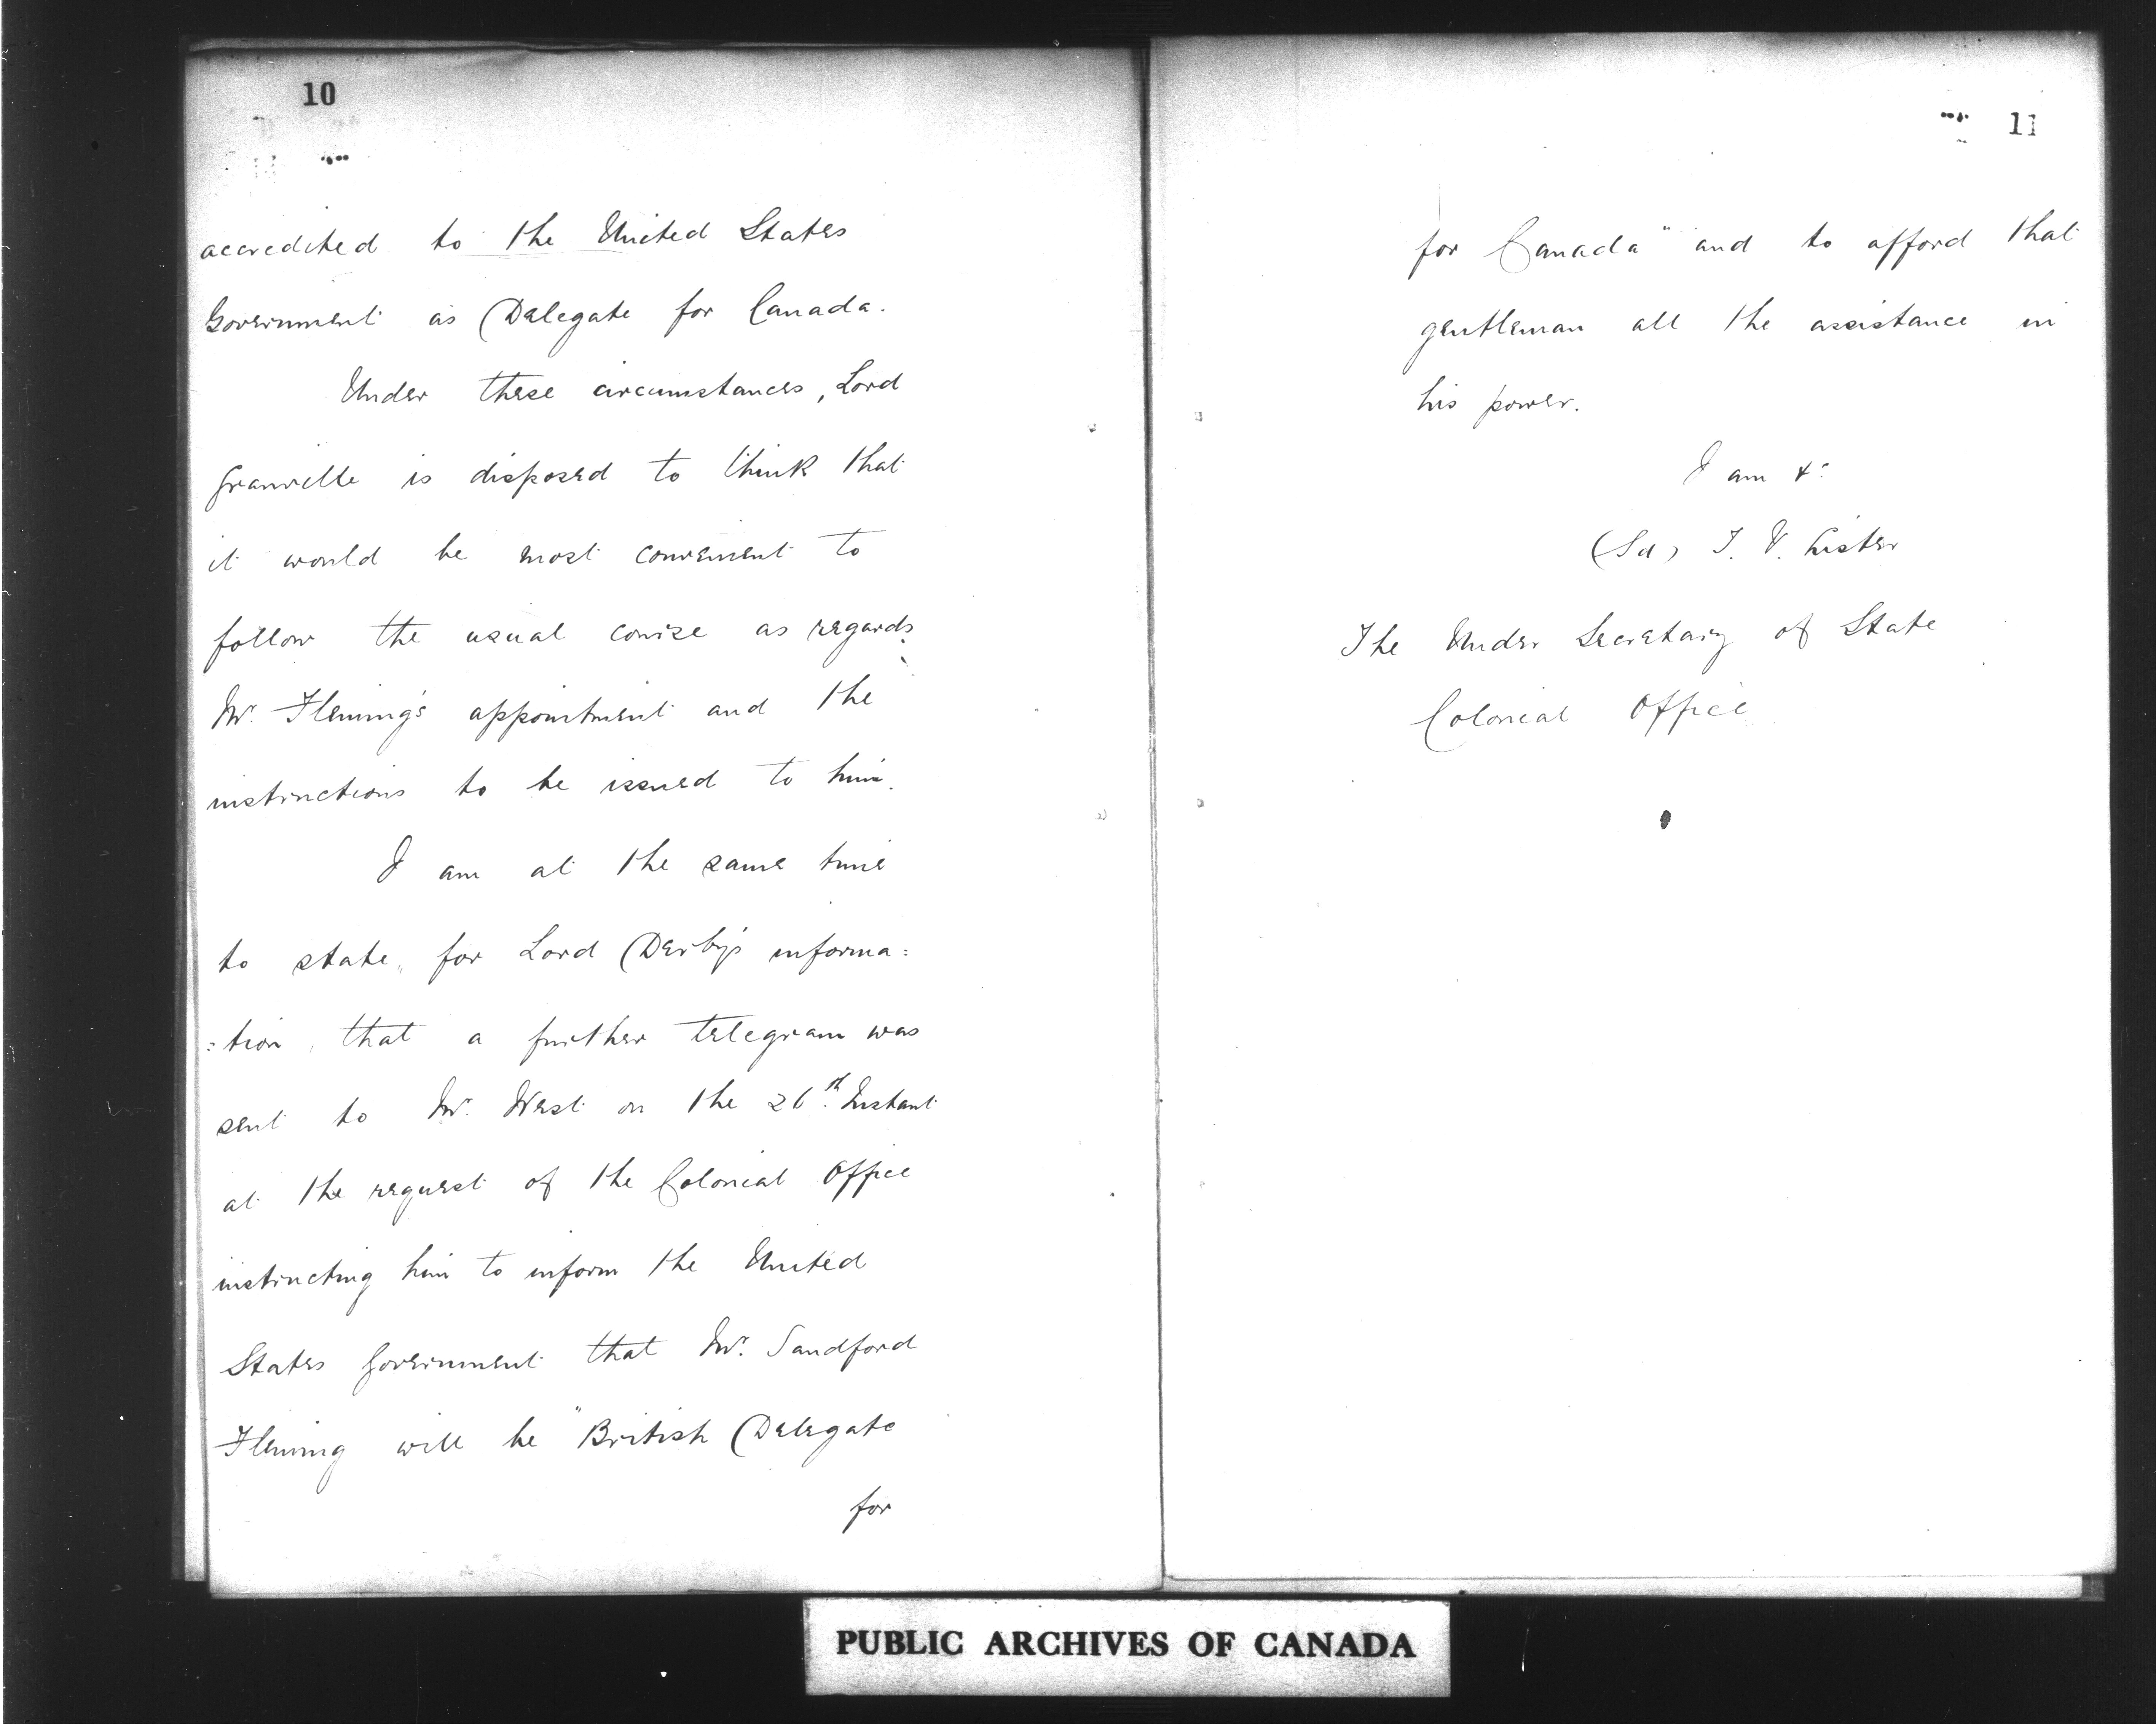 10
accredited to the United States
Government as Delegate for Canada.
Under these circumstances, Lord
Granville is disposed to think that
it would be most convenient to
follow the usual course as regards
Mr. Fleming's appointment and the
instructions to be issued to him.
I am at the same time
to state, for Lord Derby's informa=
=tion, that a further telegram was
sent to Mr. West on the 26th. Instant
at the request of the Colonial Office
instructing him to inform the United
States Government that Mr. Sandford
Fleming will be "British Delegate
for
11
for Canada" and to afford that
gentleman all the assistance in
his power.
I am &c
(Sd) T. V. Lister
The Under Secretary of State
Colonial Office
PUBLIC ARCHIVES OF CANADA